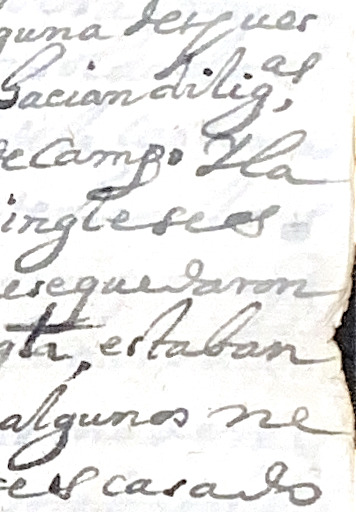 guna despues
hacian dilig.as
de Campo Yla
ingleses
esequedaron
gta, estaban
algunos ne
es casado